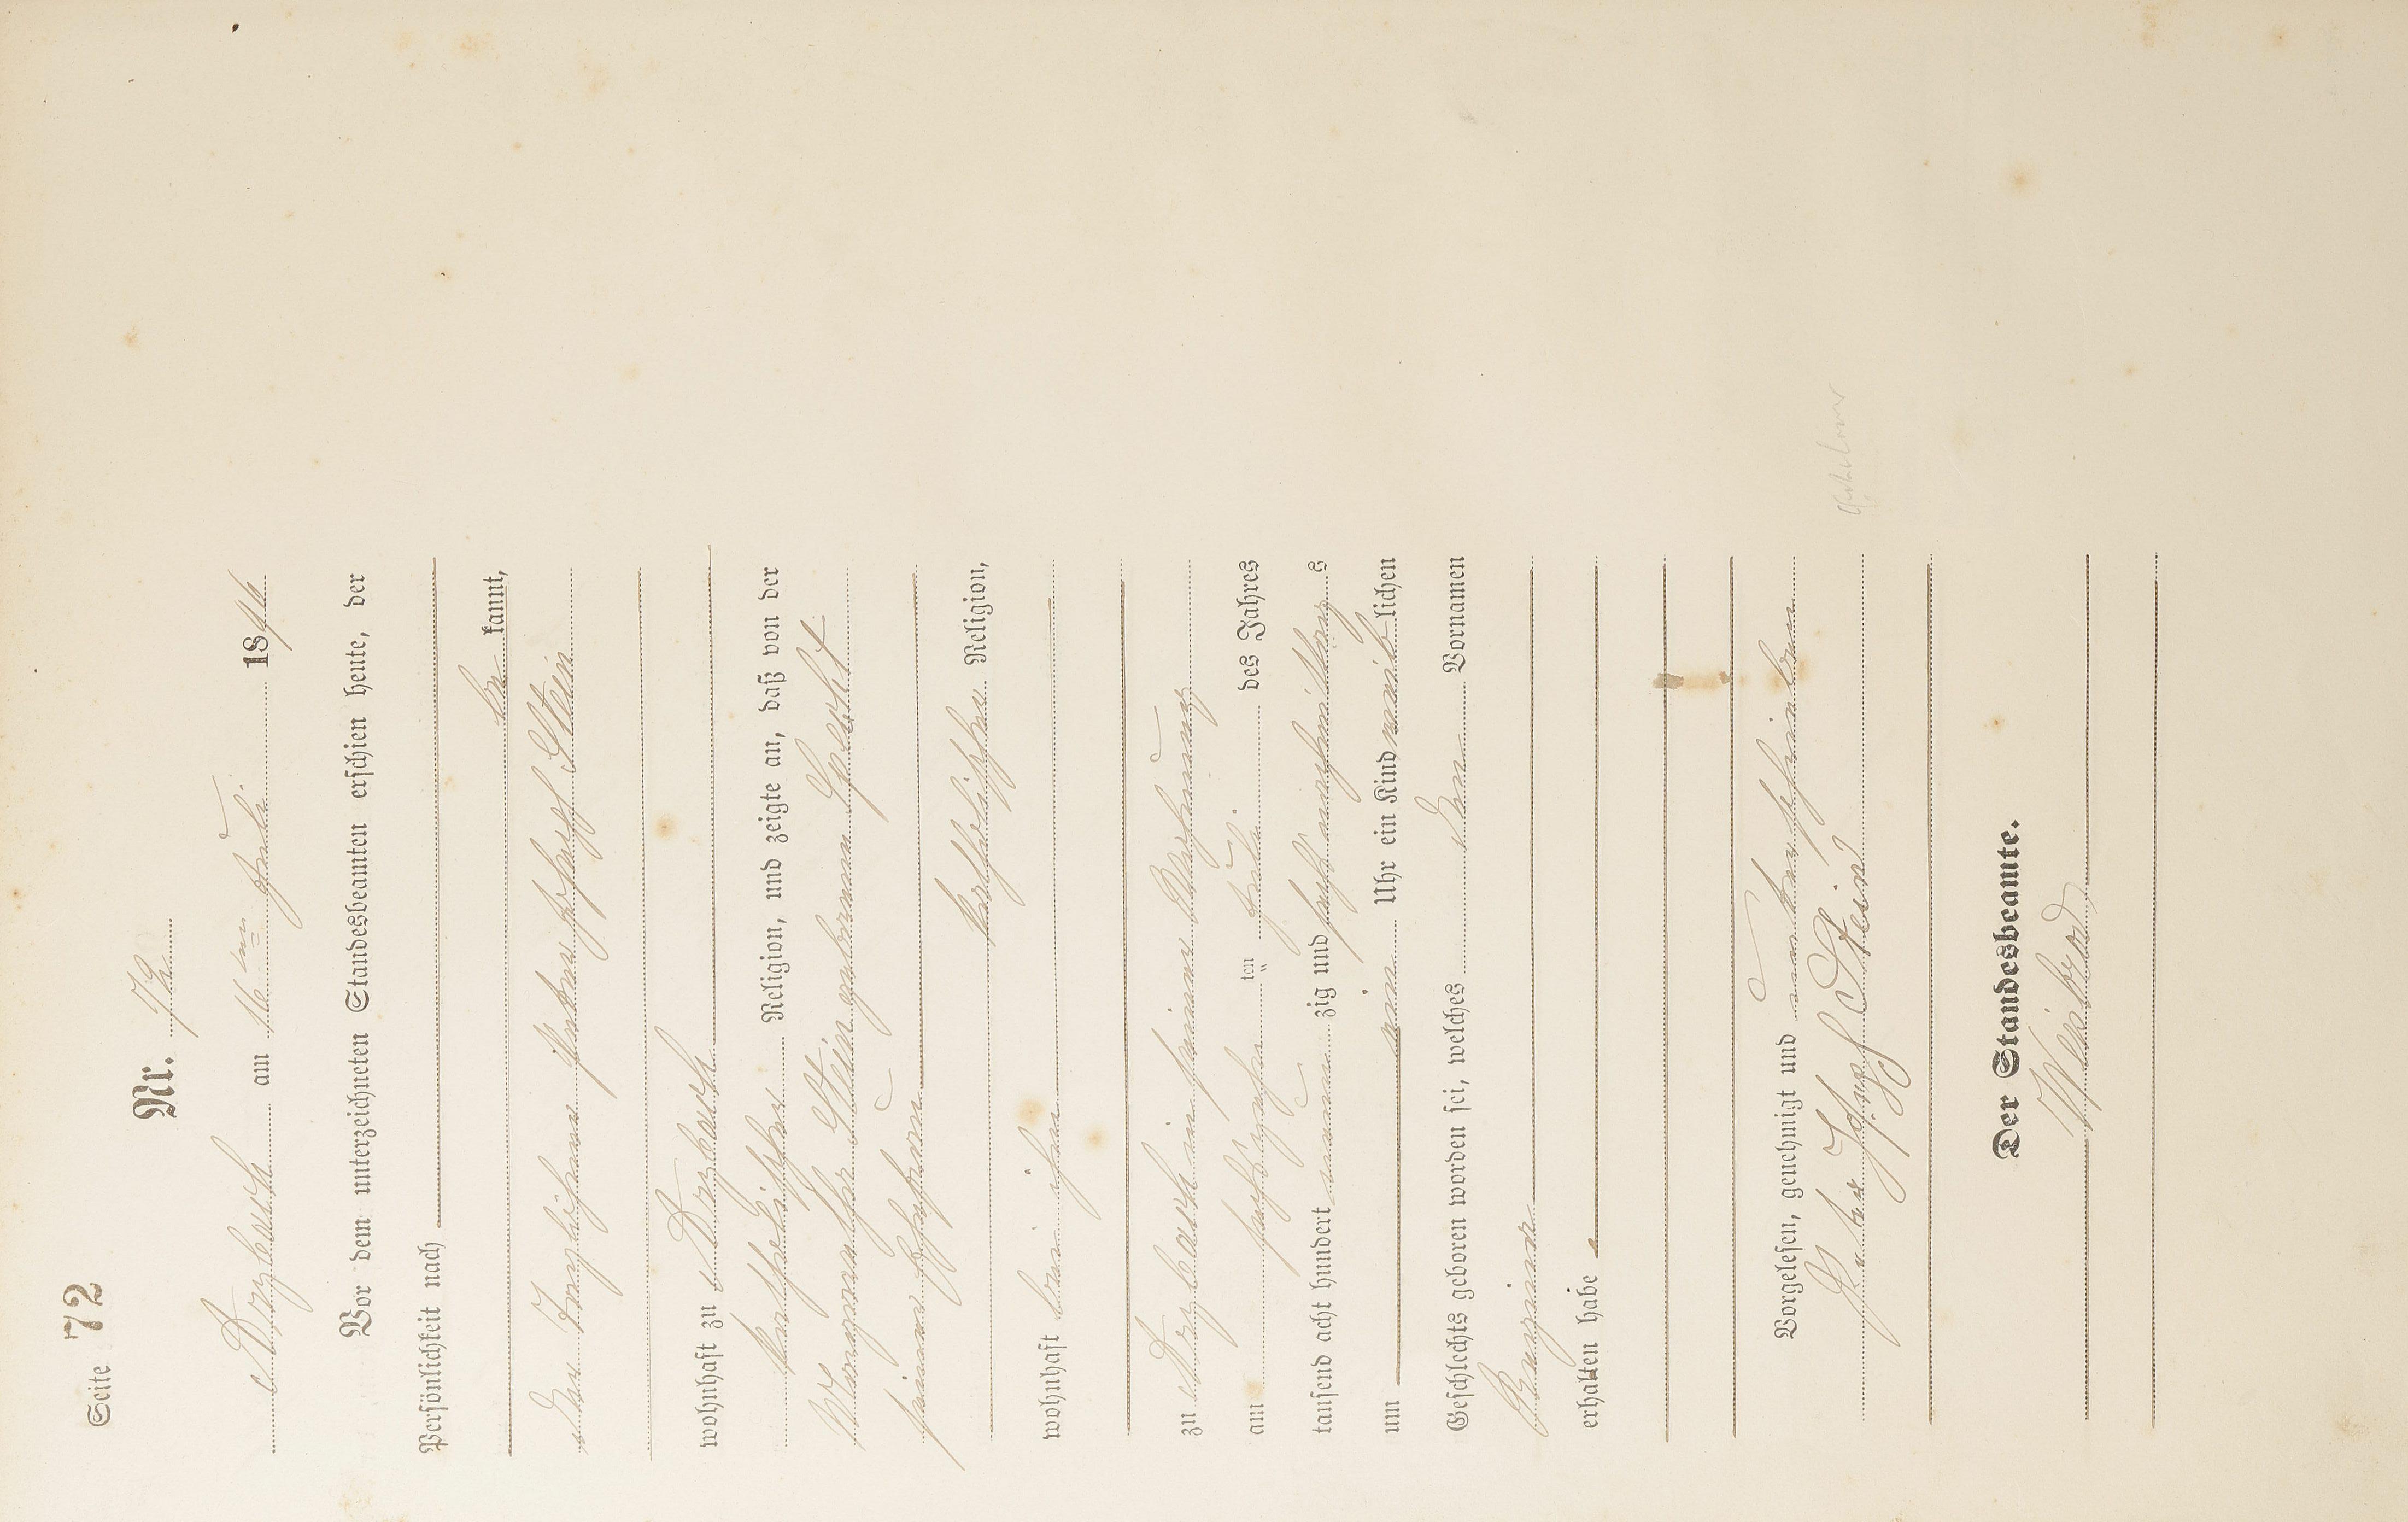 Seite 72
Nr. 72
Arzbach am 16ten Juli 1896
Vor dem unterzeichneten Standesbeamten erschien heute, der
Persönlichkeit nach
be kannt,
der Tagelöhner Peter Joseph Stein
wohnhaft zu Arzbach
katholischer Religion, und zeigte an, daß von der
Margaretha Stein geborenen Specht
seiner Ehefrau
katholischer Religion,
wohnhaft bei ihm
zu Arzbach in seiner Wohnung
am sechszehn ten Juli des Jahres
tausend acht hundert neun zig und sechs nachmittag s
um ein Uhr ein Kind weib lichen
Geschlechts geboren worden sei, welches den Vornamen
Regina
erhalten habe
Vorgelesen, genehmigt und unterschrieben
Peter Josef Stein
Der Standesbeamte.
Weisbrod